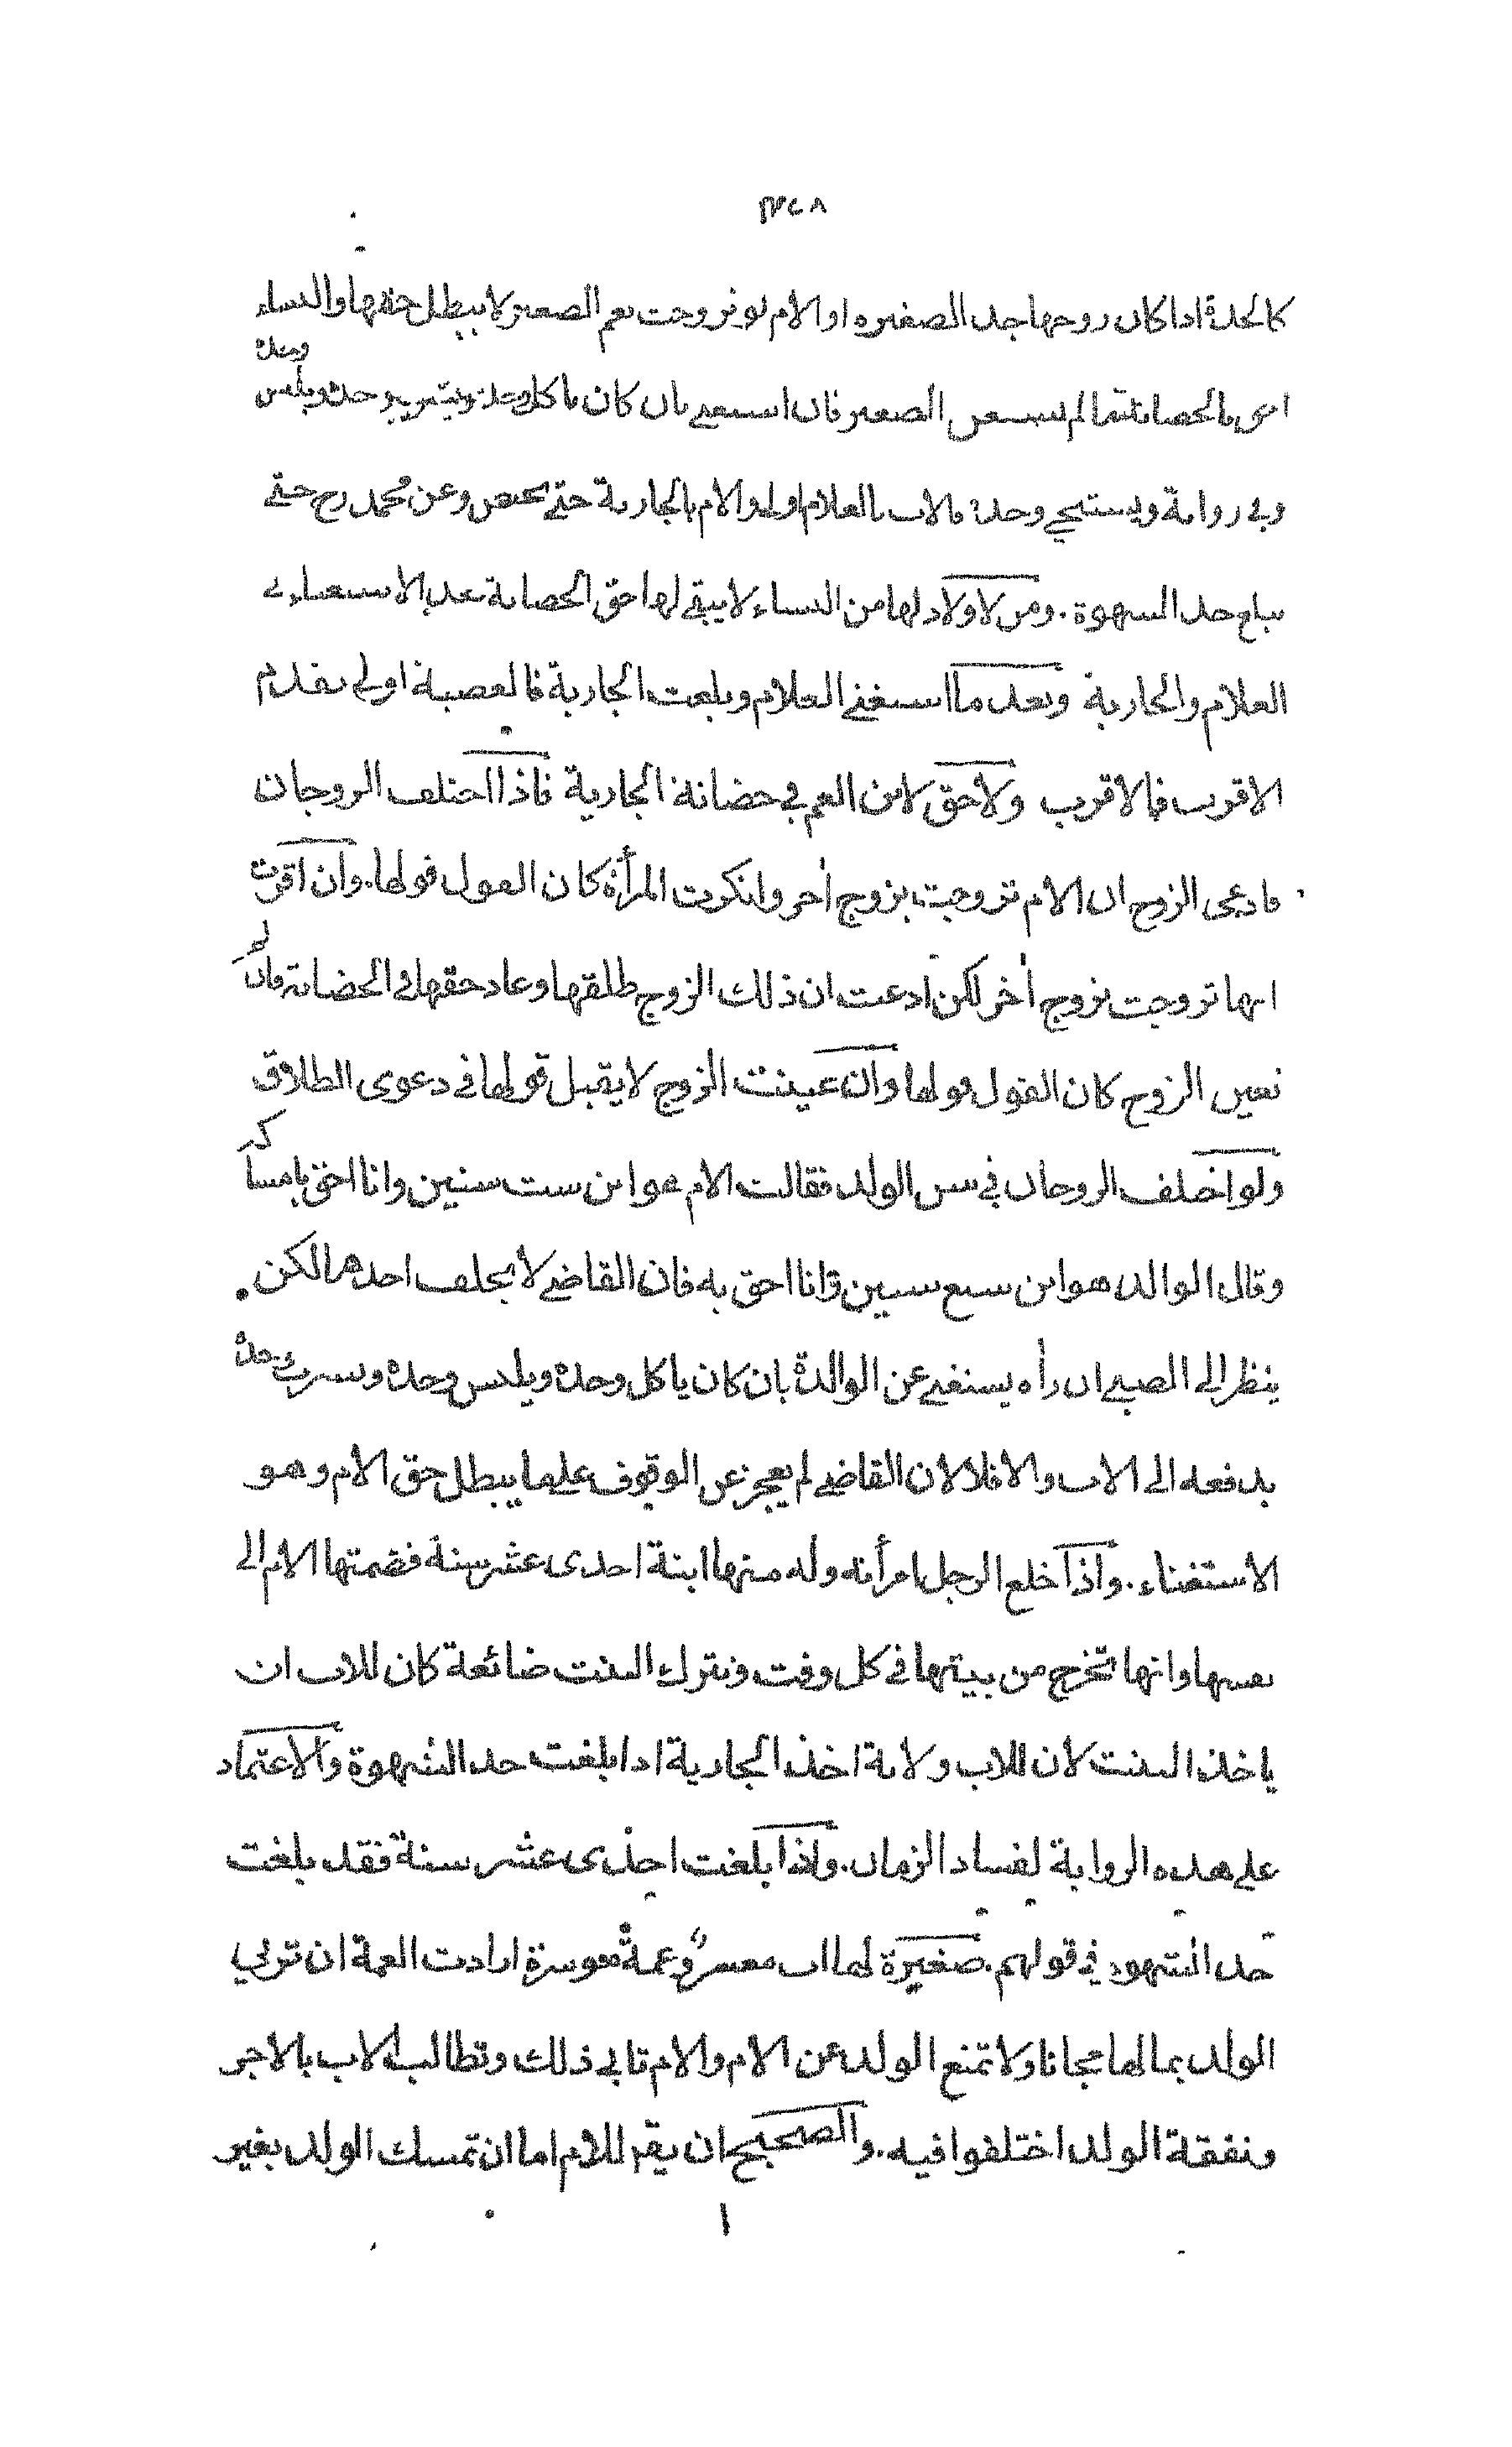 ٣٤٨
كالجدة اذا كان زوجها جد الصغيره او الام لو تزوجت بعم الصغير لا يبطل حقها والنساء
احق بالحضانة ما لم يستغن الصغير فان استغنى بان كان ياكل وحده ويشرب وحده ويلبس وحده
وفي رواية ويستنجي وحده فالاب بالغلام اولى والام بالجارية حتى تحيض وعن محمد رح حتى
تبلغ حد الشهوة . ومن لا ولاد لها من النساء لا يبقى لها حق الحضانة بعد الاستغناء في
الغلام والجارية وبعد ما استغنى الغلام وبلغت الجارية فالعصبة اولى يقدم
الاقرب فالاقرب ولا حق لابن العم في حضانة الجارية فاذا اختلف الزوجان
فادعى الزوج ان الام تزوجت بزوج اخر وانكرت المرأة كان القول قولها . وان اقرت
انها تزوجت بزوج أخر لكن ادعت ان ذلك الزوج طلقها وعاد حقها في الحضانة فان لم
تعين الزوج كان القول قولها وان عينت الزوج لا يقبل قولها في دعوى الطلاق
ولو اختلف الزوجان في سن الولد فقالت الام هو ابن ست سنين وانا احق بامساكه
وقال الوالد هو ابن سبع سنين وانا احق به فان القاضي لا يحلف احدهما لكن
ينظر الى الصبي ان رأه يستغني عن الوالدة بان كان ياكل وحده ويلبس وحده ويشرب وحده
يدفعه الى الاب والا فلا لان القاضي لم يعجز عن الوقوف على ما يبطل حق الام وهو
الاستغناء . واذا خلع الرجل امرأته وله منها ابنة احدى عشر سنة فضمتها الام الى
نفسها وانها تخرج من بيتها في كل وقت وتترك البنت ضائعة كان للاب ان
ياخذ البنت لان للاب ولاية اخذ الجارية اذا بلغت حد الشهوة والاعتماد
على هذه الرواية لفساد الزمان . واذا بلغت احدى عشر سنة فقد بلغت
حد الشهوة في قولهم . صغيرة لها اب معسر وعمة موسرة ارادت العمة ان تربي
الولد بمالها مجانا ولا تمنع الولد عن الام والام تابى ذلك وتطالب الاب بالاجر
ونفقة الولد اختلفوا فيه . والصحيح ان يقر للام اما ان تمسك الولد بغير